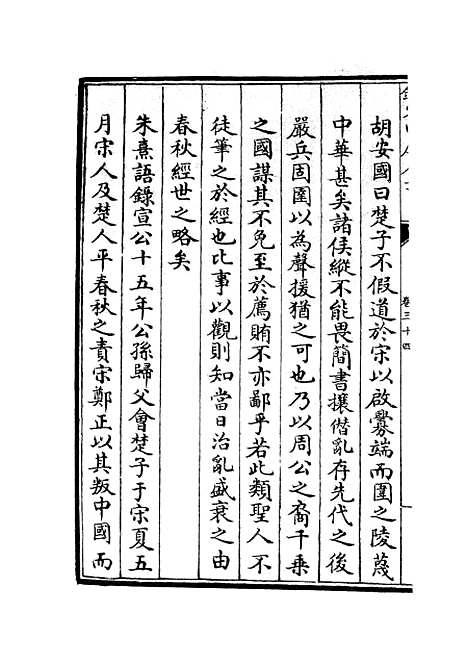 胡安國曰楚子不假道於宋以啟釁端而圍之陵蔑
中華甚矣諸侯縱不能畏簡書攘僭亂存先代之後
嚴兵固圉以為聲援猶之可也乃以周公之裔千乘
之國謀其不免至於薦賄不亦鄙乎若此類聖人不
徒筆之於經也比事以觀則知當日治亂盛衰之由
春秋經世之略矣
朱熹語錄宣公十五年公孫歸父會楚子于宋夏五
月宋人及楚人平春秋之責宋鄭正以其叛中國而
卷三十四